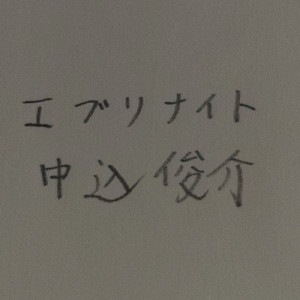 エブリナイト
申込俊介